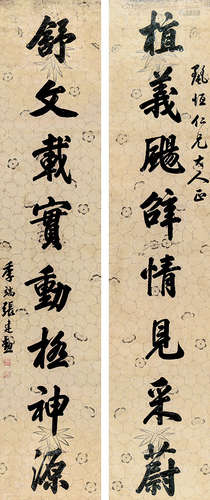 植義颺辭情見采蔚
珮恒仁兄大人正
舒文載實動極神源
季端張建勳